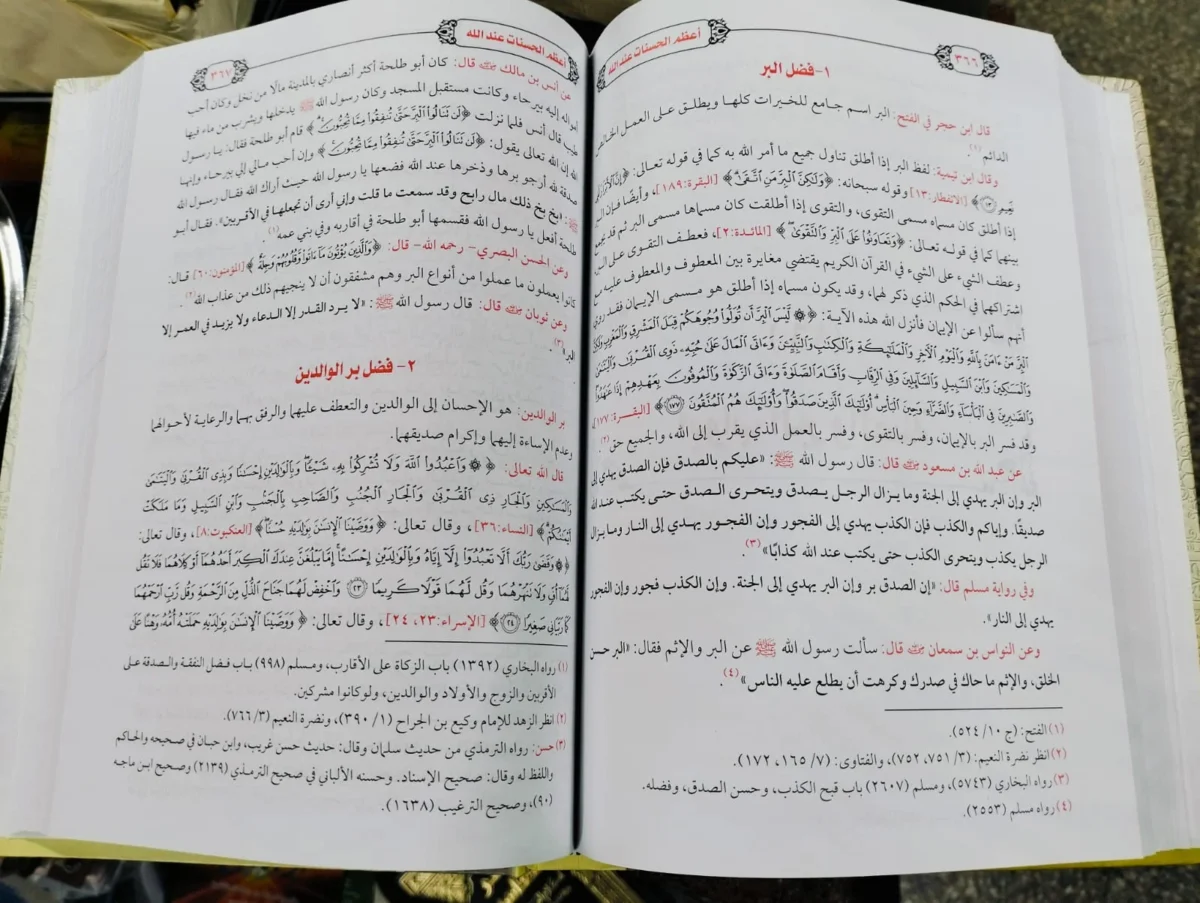 ٣٦٦
أعظم الحسنات عند الله
١- فضل البر
قال ابن حجر في الفتح: البر اسم جامع للخيرات كلها ويطلق على العمل الخالص
الدائم(١).
وقال ابن تيمية: لفظ البر إذا أطلق تناول جميع ما أمر الله به كما في قوله تعالى: ﴿إِنَّ الْأَبْرَارَ لَفِي
نَعِيمٍ ۝١٣﴾ [الانفطار:١٣] وقوله سبحانه: ﴿وَلَٰكِنَّ الْبِرَّ مَنِ اتَّقَىٰ﴾ [البقرة:١٨٩]، وأيضًا فإن البر
إذا أطلق كان مسماه مسمى التقوى، والتقوى إذا أطلقت كان مسماها مسمى البر ثم قد يجمع
بينهما كما في قوله تعالى: ﴿وَتَعَاوَنُوا عَلَى الْبِرِّ وَالتَّقْوَىٰ﴾ [المائدة:٢]، فعطف التقوى على البر،
وعطف الشيء على الشيء في القرآن الكريم يقتضي مغايرة بين المعطوف والمعطوف عليه مع
اشتراكهما في الحكم الذي ذكر لهما، وقد يكون مسماه إذا أطلق هو مسمى الإيمان فقد روي
أنهم سألوا عن الإيمان فأنزل الله هذه الآية: ﴿۞ لَّيْسَ الْبِرَّ أَن تُوَلُّوا وُجُوهَكُمْ قِبَلَ الْمَشْرِقِ وَالْمَغْرِبِ وَلَٰكِنَّ
الْبِرَّ مَنْ آمَنَ بِاللَّهِ وَالْيَوْمِ الْآخِرِ وَالْمَلَائِكَةِ وَالْكِتَابِ وَالنَّبِيِّينَ وَآتَى الْمَالَ عَلَىٰ حُبِّهِ ذَوِي الْقُرْبَىٰ وَالْيَتَامَىٰ
وَالْمَسَاكِينَ وَابْنَ السَّبِيلِ وَالسَّائِلِينَ وَفِي الرِّقَابِ وَأَقَامَ الصَّلَاةَ وَآتَى الزَّكَاةَ وَالْمُوفُونَ بِعَهْدِهِمْ إِذَا عَاهَدُوا
وَالصَّابِرِينَ فِي الْبَأْسَاءِ وَالضَّرَّاءِ وَحِينَ الْبَأْسِ أُولَٰئِكَ الَّذِينَ صَدَقُوا وَأُولَٰئِكَ هُمُ الْمُتَّقُونَ ۝١٧٧﴾ [البقرة:١٧٧]،
وقد فسر البر بالإيمان، وفسر بالتقوى، وفسر بالعمل الذي يقرب إلى الله، والجميع حق(٢).
عن عبد الله بن مسعود ﵁ قال: قال رسول الله ﷺ: «عليكم بالصدق فإن الصدق يهدي إلى
البر وإن البر يهدي إلى الجنة وما يزال الرجل يصدق ويتحرى الصدق حتى يكتب عند الله
صديقًا. وإياكم والكذب فإن الكذب يهدي إلى الفجور وإن الفجور يهدي إلى النار وما يزال
الرجل يكذب ويتحرى الكذب حتى يكتب عند الله كذابًا»(٣).
وفي رواية مسلم قال: «إن الصدق بر وإن البر يهدي إلى الجنة. وإن الكذب فجور وإن الفجور
يهدي إلى النار».
وعن النواس بن سمعان ﵁ قال: سألت رسول الله ﷺ عن البر والإثم فقال: «البر حسن
الخلق، والإثم ما حاك في صدرك وكرهت أن يطلع عليه الناس»(٤).
(١) الفتح: (ج ١٠/ ٥٢٤).
(٢) انظر نضرة النعيم: (٣/ ٧٥١، ٧٥٢)، والفتاوى: (٧/ ١٦٥، ١٧٢).
(٣) رواه البخاري (٥٧٤٣)، ومسلم (٢٦٠٧) باب قبح الكذب، وحسن الصدق، وفضله.
(٤) رواه مسلم (٢٥٥٣).
أعظم الحسنات عند الله
٣٦٧
عن أنس بن مالك ﵁ قال: كان أبو طلحة أكثر أنصاري بالمدينة مالًا من نخل وكان أحب
أمواله إليه بيرحاء وكانت مستقبل المسجد وكان رسول الله ﷺ يدخلها ويشرب من ماء فيها
طيب قال أنس فلما نزلت ﴿لَن تَنَالُوا الْبِرَّ حَتَّىٰ تُنفِقُوا مِمَّا تُحِبُّونَ﴾ قام أبو طلحة فقال: يا رسول
الله إن الله تعالى يقول: ﴿لَن تَنَالُوا الْبِرَّ حَتَّىٰ تُنفِقُوا مِمَّا تُحِبُّونَ﴾ وإن أحب مالي إلي بيرحاء وإنها
صدقة لله أرجو برها وذخرها عند الله فضعها يا رسول الله حيث أراك الله فقال رسول الله
ﷺ: «بخ بخ ذلك مال رابح وقد سمعت ما قلت وإني أرى أن تجعلها في الأقربين». فقال أبو
طلحة أفعل يا رسول الله فقسمها أبو طلحة في أقاربه وفي بني عمه(١).
وعن الحسن البصري- رحمه الله- قال: ﴿وَالَّذِينَ يُؤْتُونَ مَا آتَوا وَّقُلُوبُهُمْ وَجِلَةٌ﴾ [المؤمنون:٦٠] قال:
كانوا يعملون ما عملوا من أنواع البر وهم مشفقون أن لا ينجيهم ذلك من عذاب الله(٢).
وعن ثوبان ﵁ قال: قال رسول الله ﷺ: «لا يرد القدر إلا الدعاء ولا يزيد في العمر إلا
البر»(٣).
٢- فضل بر الوالدين
بر الوالدين: هو الإحسان إلى الوالدين والتعطف عليهما والرفق بهما والرعاية لأحوالهما
وعدم الإساءة إليهما وإكرام صديقهما.
قال الله تعالى: ﴿۞ وَاعْبُدُوا اللَّهَ وَلَا تُشْرِكُوا بِهِ شَيْئًا وَبِالْوَالِدَيْنِ إِحْسَانًا وَبِذِي الْقُرْبَىٰ وَالْيَتَامَىٰ
وَالْمَسَاكِينِ وَالْجَارِ ذِي الْقُرْبَىٰ وَالْجَارِ الْجُنُبِ وَالصَّاحِبِ بِالْجَنبِ وَابْنِ السَّبِيلِ وَمَا مَلَكَتْ
أَيْمَانُكُمْ﴾ [النساء:٣٦]، وقال تعالى: ﴿وَوَصَّيْنَا الْإِنسَانَ بِوَالِدَيْهِ حُسْنًا﴾ [العنكبوت:٨]، وقال تعالى:
﴿۞ وَقَضَىٰ رَبُّكَ أَلَّا تَعْبُدُوا إِلَّا إِيَّاهُ وَبِالْوَالِدَيْنِ إِحْسَانًا إِمَّا يَبْلُغَنَّ عِندَكَ الْكِبَرَ أَحَدُهُمَا أَوْ كِلَاهُمَا فَلَا تَقُل
لَّهُمَا أُفٍّ وَلَا تَنْهَرْهُمَا وَقُل لَّهُمَا قَوْلًا كَرِيمًا ۝٢٣ وَاخْفِضْ لَهُمَا جَنَاحَ الذُّلِّ مِنَ الرَّحْمَةِ وَقُل رَّبِّ ارْحَمْهُمَا
كَمَا رَبَّيَانِي صَغِيرًا ۝٢٤﴾ [الإسراء:٢٣، ٢٤]، وقال تعالى: ﴿وَوَصَّيْنَا الْإِنسَانَ بِوَالِدَيْهِ حَمَلَتْهُ أُمُّهُ وَهْنًا عَلَىٰ
(١) رواه البخاري (١٣٩٢) باب الزكاة على الأقارب، ومسلم (٩٩٨) باب فضل النفقة والصدقة على
الأقربين والزوج والأولاد والوالدين، ولو كانوا مشركين.
(٢) انظر الزهد للإمام وكيع بن الجراح (١/ ٣٩٠)، ونضرة النعيم (٣/ ٧٦٦).
(٣) حسن: رواه الترمذي من حديث سلمان وقال: حديث حسن غريب، وابن حبان في صحيحه والحاكم
واللفظ له وقال: صحيح الإسناد. وحسنه الألباني في صحيح الترمذي (٢١٣٩) وصحيح ابن ماجه
(٩٠)، وصحيح الترغيب (١٦٣٨).